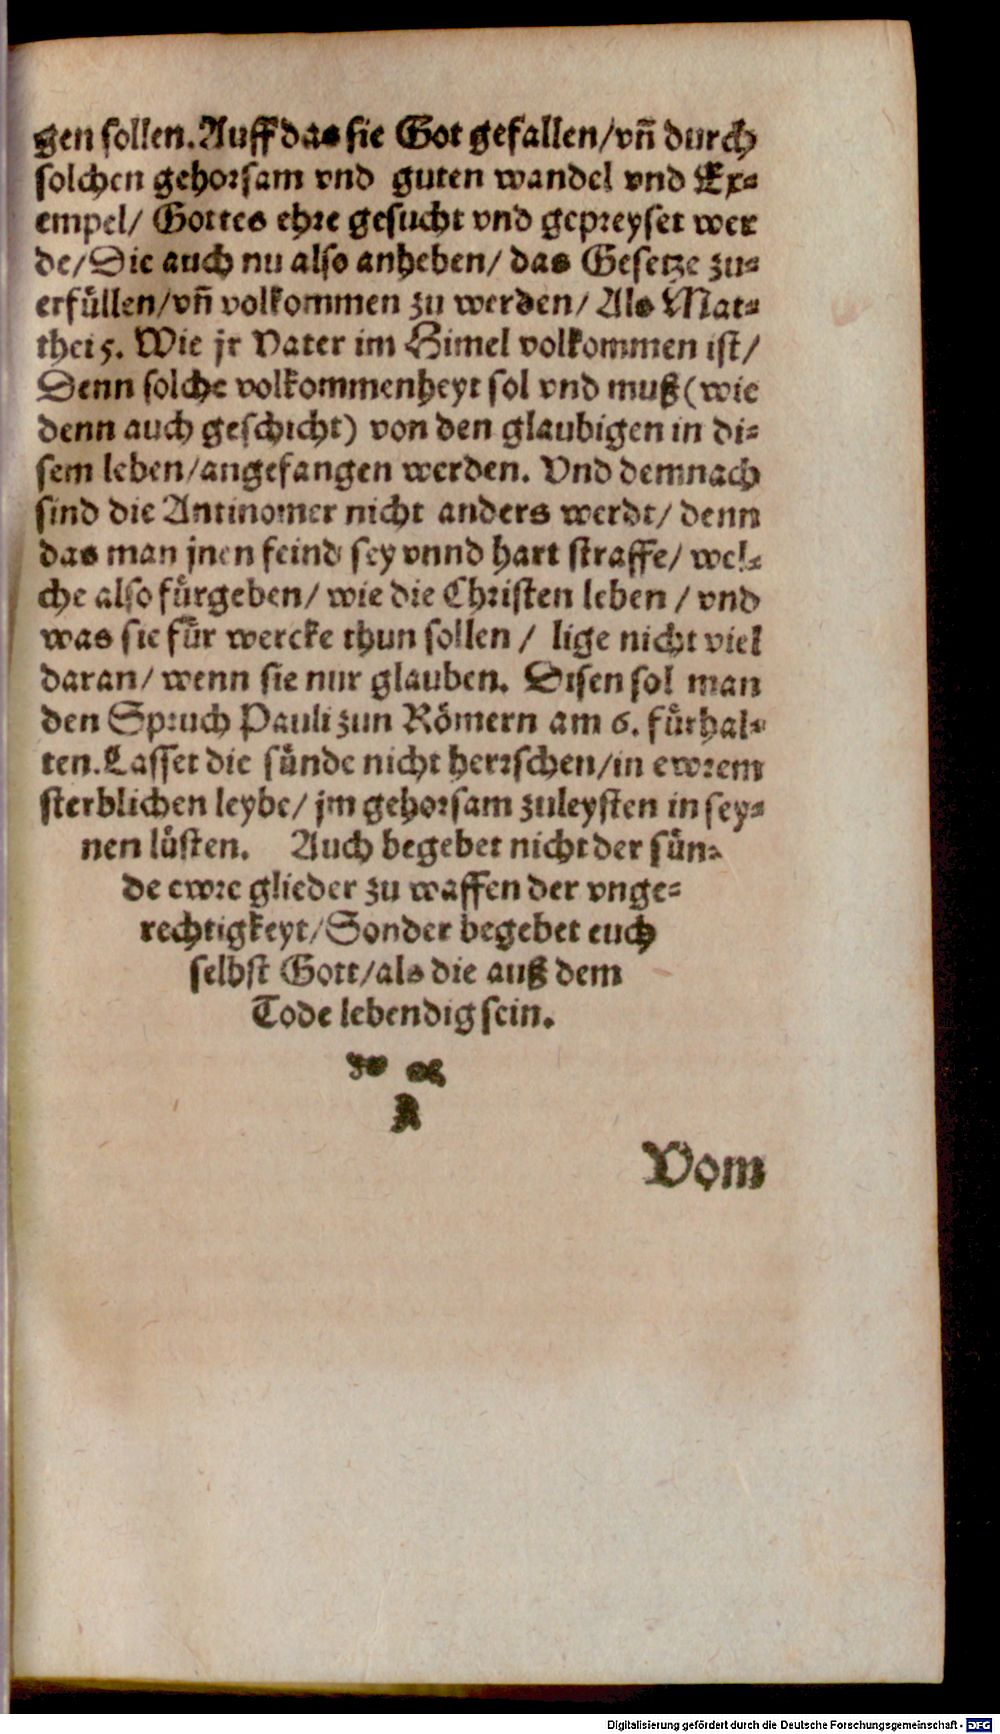 gen sollen. Auff das sie Got gefallen/ vñ durch
solchen gehorsam vnd guten wandel vnd Ex-
empel/ Gottes ehre gesucht vnd gepreyset wer
de/ Die auch nu also anheben/ das Gesetze zu-
erfüllen/ vñ volkommen zu werden/ Als Mat-
thei 5. Wie jr Vater im Himel volkommen ist/
Denn solche volkommenheyt sol vnd muß (wie
denn auch geschicht) von den glaubigen in di-
sem leben/ angefangen werden. Vnd demnach
sind die Antinomer nicht anders werdt/ denn
das man jnen feind sey vnnd hart straffe/ wel-
che also fürgeben/ wie die Christen leben / vnd
was sie für wercke thun sollen / lige nicht viel
daran/ wenn sie nur glauben. Disen sol man
den Spruch Pauli zun Römern am 6. fürhal-
ten. Lasset die sünde nicht herrschen/ in ewrem
sterblichen leybe/ jm gehorsam zuleysten in sey-
nen lüsten. Auch begebet nicht der sün-
de ewre glieder zu waffen der vnge-
rechtigkeyt/ Sonder begebet euch
selbst Gott/ als die auß dem
Tode lebendig sein.
Vom
Digitalisierung gefördert durch die Deutsche Forschungsgemeinschaft - DFG